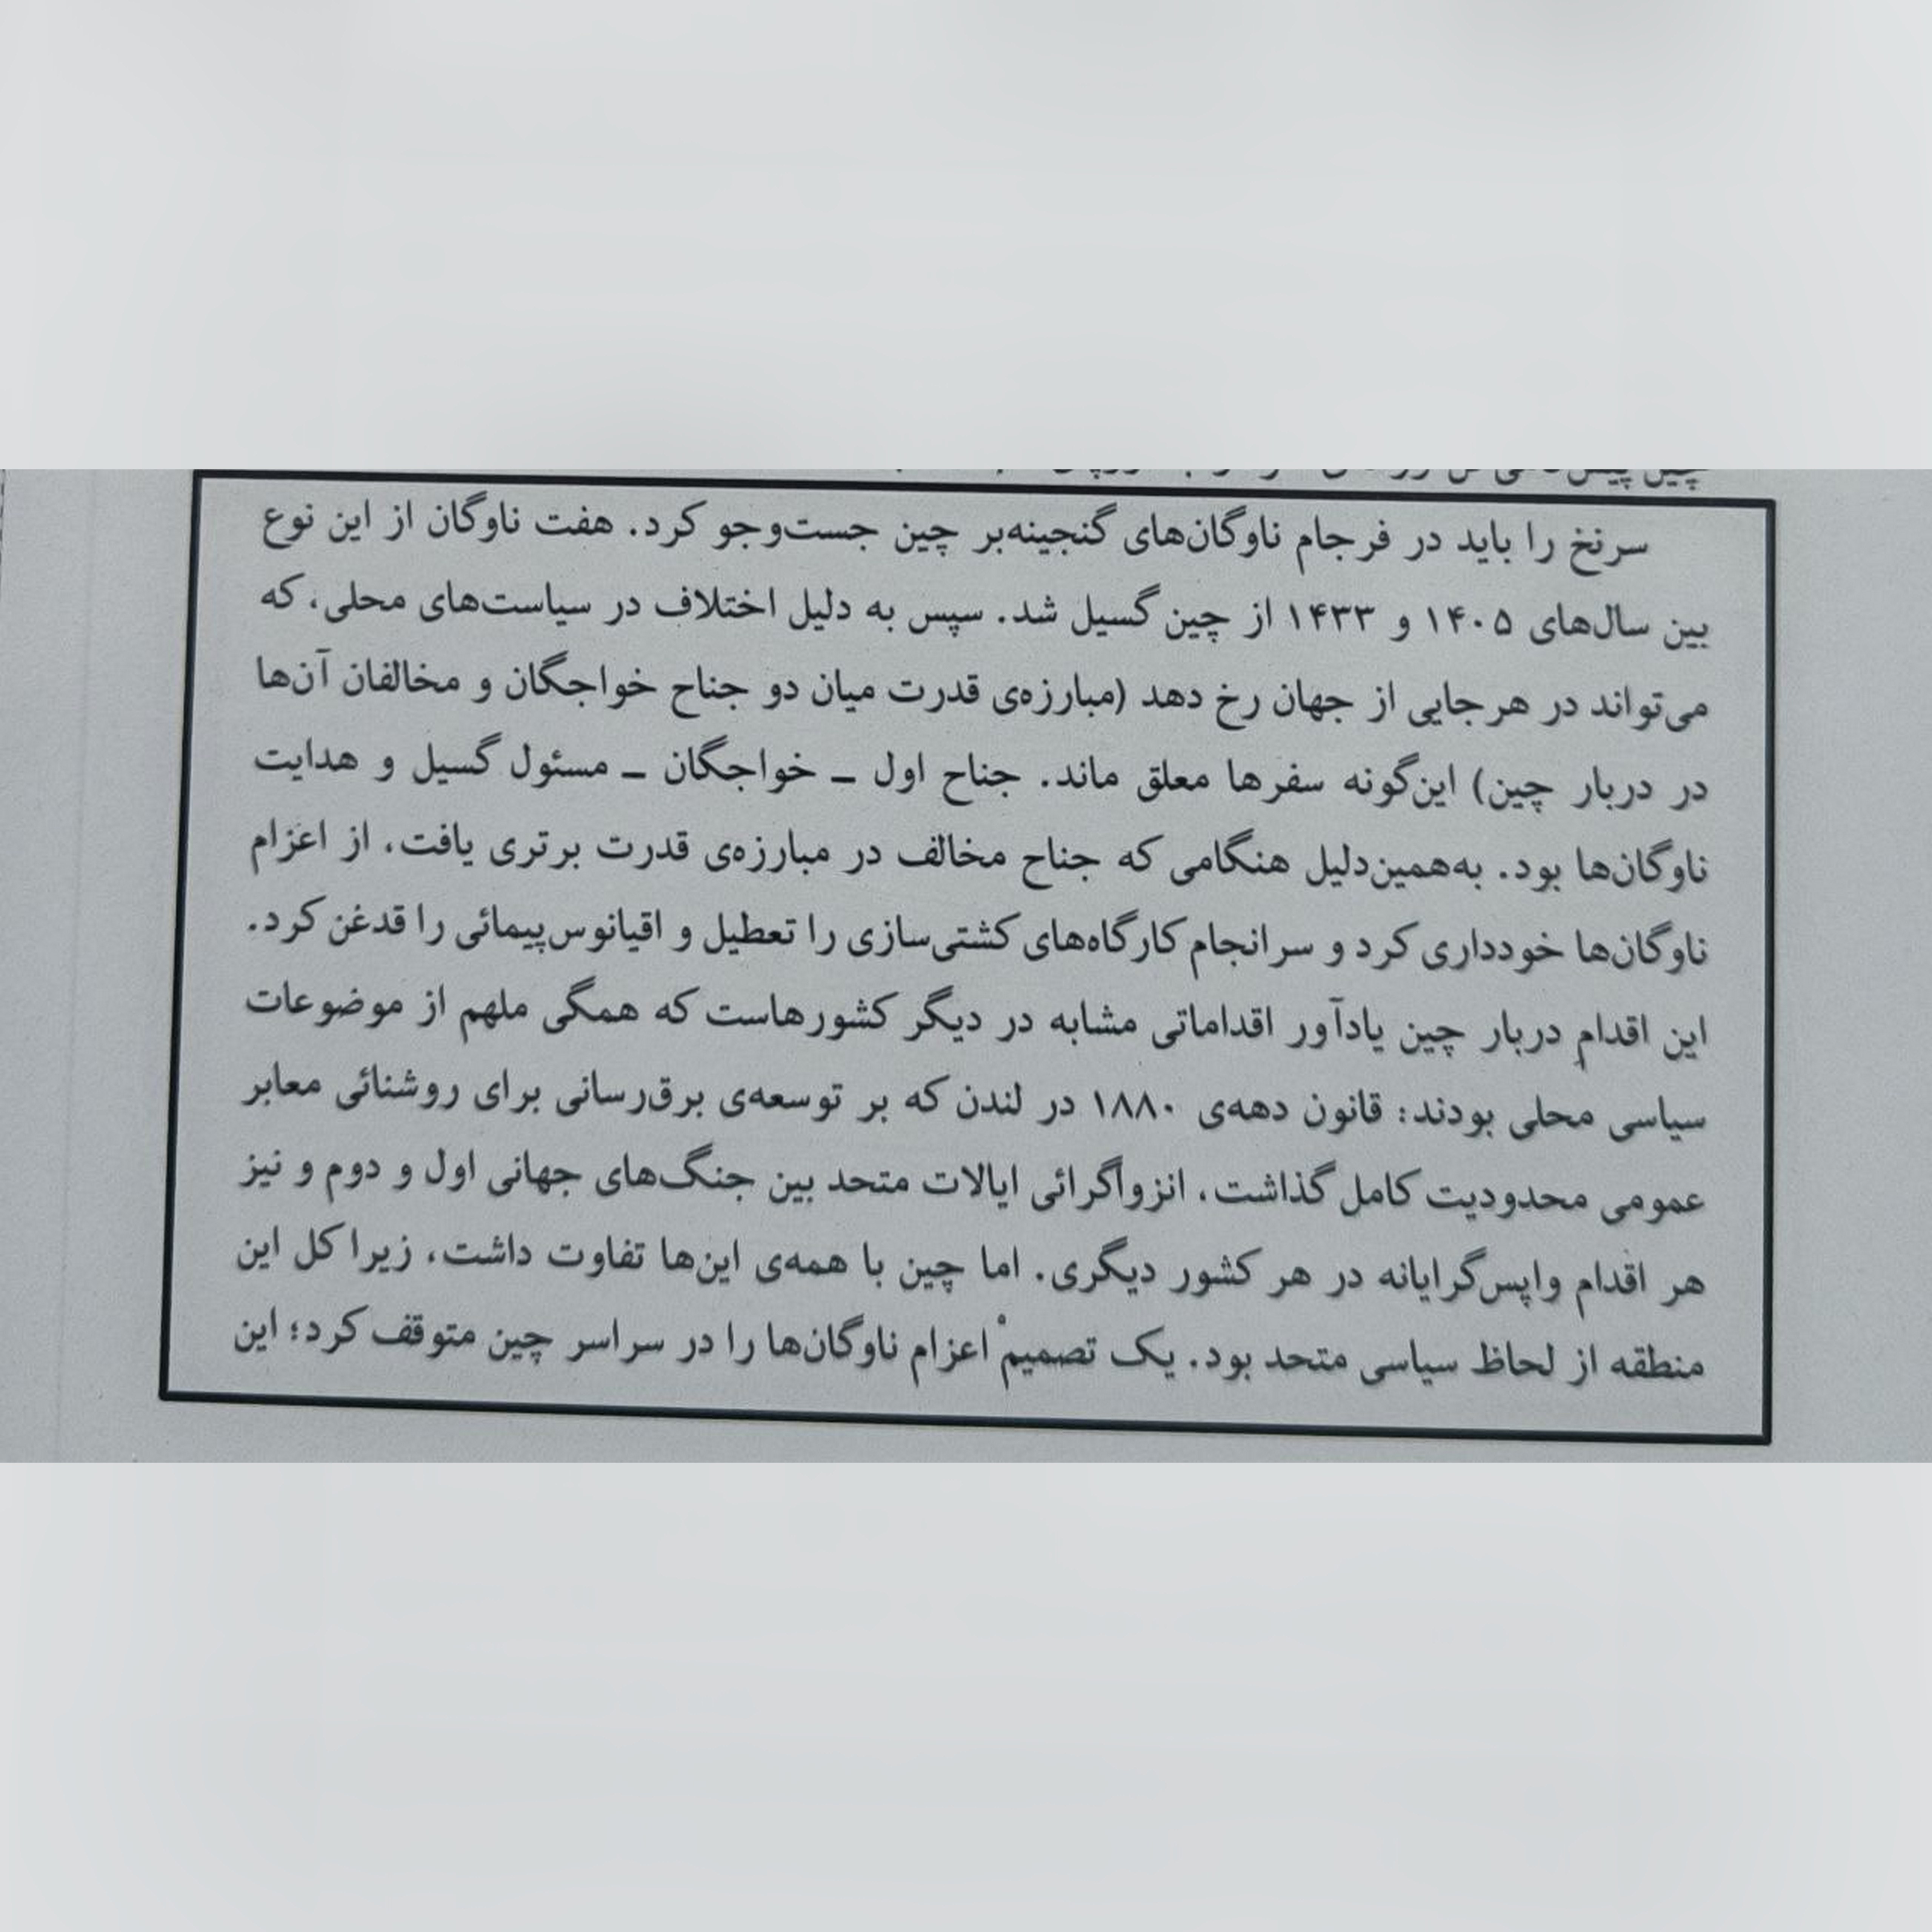 سرنخ را باید در فرجام ناوگان‌های گنجینه‌بر چین جست‌وجو کرد. هفت ناوگان از این نوع
بین سال‌های ۱۴۰۵ و ۱۴۳۳ از چین گسیل شد. سپس به دلیل اختلاف در سیاست‌های محلی، که
می‌تواند در هرجایی از جهان رخ دهد (مبارزه‌ی قدرت میان دو جناح خواجگان و مخالفان آن‌ها
در دربار چین) این‌گونه سفرها معلق ماند. جناح اول ـ خواجگان ـ مسئول گسیل و هدایت
ناوگان‌ها بود. به‌همین‌دلیل هنگامی که جناح مخالف در مبارزه‌ی قدرت برتری یافت، از اعزام
ناوگان‌ها خودداری کرد و سرانجام کارگاه‌های کشتی‌سازی را تعطیل و اقیانوس‌پیمائی را قدغن کرد.
این اقدامِ دربار چین یادآور اقداماتی مشابه در دیگر کشورهاست که همگی ملهم از موضوعات
سیاسی محلی بودند: قانون دهه‌ی ۱۸۸۰ در لندن که بر توسعه‌ی برق‌رسانی برای روشنائی معابر
عمومی محدودیت کامل گذاشت، انزواگرائی ایالات متحد بین جنگ‌های جهانی اول و دوم و نیز
هر اقدام واپس‌گرایانه در هر کشور دیگری. اما چین با همه‌ی این‌ها تفاوت داشت، زیرا کل این
منطقه از لحاظ سیاسی متحد بود. یک تصمیمْ اعزام ناوگان‌ها را در سراسر چین متوقف کرد؛ این